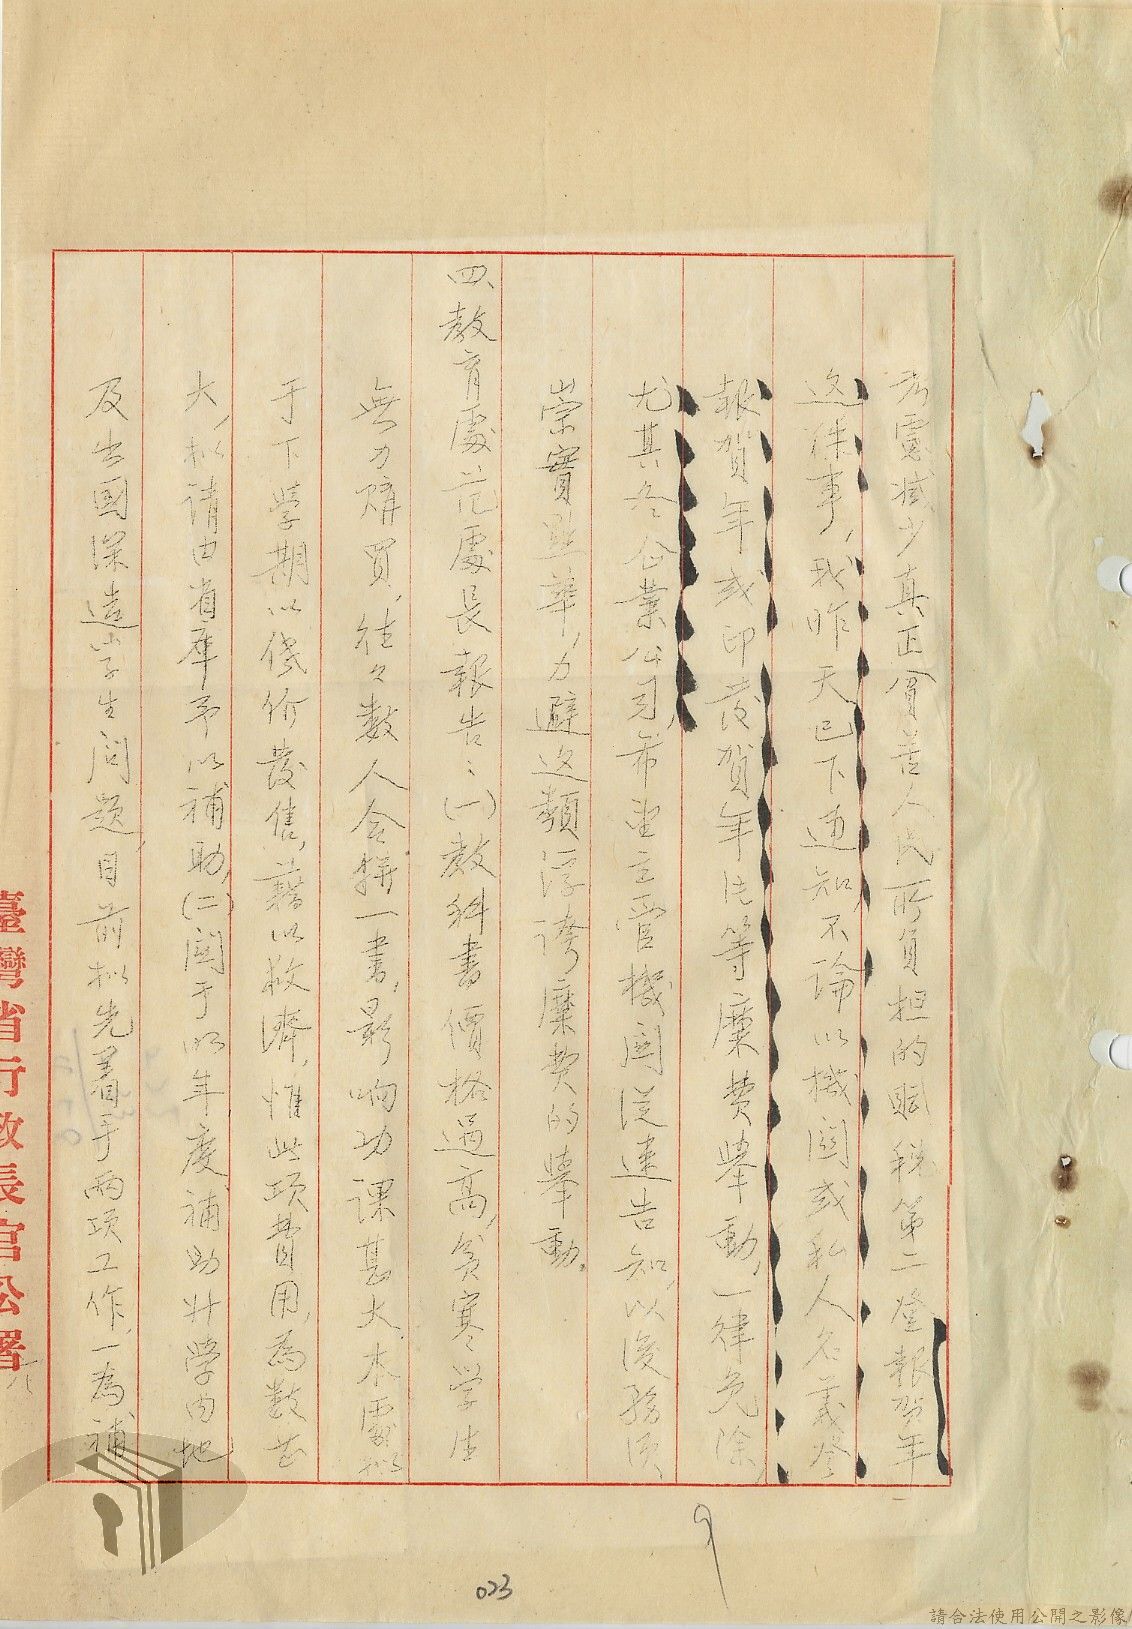 考慮減少真正貧苦人民所負担的賦稅第二登報賀年
這件事，我昨天已下通知，不論以機関或私人名義登
報賀年或印發賀年片等糜費舉動，一律免除，
尤其各公企業公司，希望主管機関從速告知，以後務須
崇實黜華，力避這類浮誇糜費的舉動。
四、教育處范處長報告：(一)教科書價格過高，貧寒學生
無力購買，往々數人合購一書，影响功課甚大本處擬
于下學期以低价發售，藉以救濟，惟此項費用，為數甚
大，擬請由省庫予以補助，(二)関于明年度補助升學内地
及出國深造学生問題，目前擬先着手兩項工作，一為補
臺灣省行政長官公署
023
請合法使用公開之影像